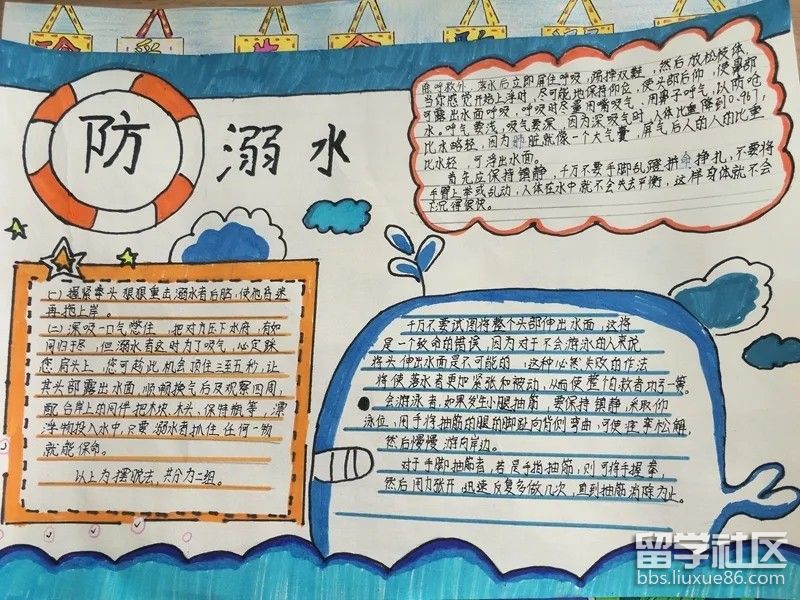 防
溺水
除呼救外，落水后立即屏住呼吸，踢掉双鞋，然后放松肢体，
当你感觉开始上浮时，尽可能地保持仰位，使头部后仰，使鼻部
可露出水面呼吸，呼吸时尽量用嘴吸气、用鼻子呼气，以防呛
水。呼气要浅，吸气要深。因为深吸气时，人体比重降到0.967，
比水略轻，因为肺脏就像一个大气囊，屏气后人的人的比重
比水轻 可浮出水面。
首先应保持镇静，千万不要手脚乱蹬拼命挣扎，不要将
手臂上举或乱动，人体在水中就不会失去平衡，这样身体就不会
下沉得很快。
(一)握紧拳头狠狠重击溺水者后脑，使他昏迷
再拖上岸。
(二)深吸一口气憋住，把对方压下水底，有如
同归于尽，但溺水者这时为了吸气，必定踩
您肩头上，您可趁此机会顶住三至五秒，让
其头部露出水面，顺畅换气后及观察四周，
配合岸上的同伴把木块、木头、保特瓶等，漂
浮物投入水中，只要溺水者抓住任何一物
就能保命。
以上为摆脱法，共分为二组。
千万不要试图将整个头部伸出水面，这将
是一个致命的错误，因为对于不会游泳的人来说
将头伸出水面是不可能的，这种必然失败的作法
将使落水者更加紧张和被动，从而使整个自救者功亏一篑。
会游泳者，如果发生小腿抽筋，要保持镇静，采取仰
泳位，用手将抽筋的腿的脚趾向背侧弯曲，可使痉挛松解，
然后慢慢游向岸边。
对于手脚抽筋者，若是手指抽筋，则可将手握拳，
然后用力张开，迅速反复多做几次，直到抽筋消除为止。
留学社区
bbs.liuxue86.com